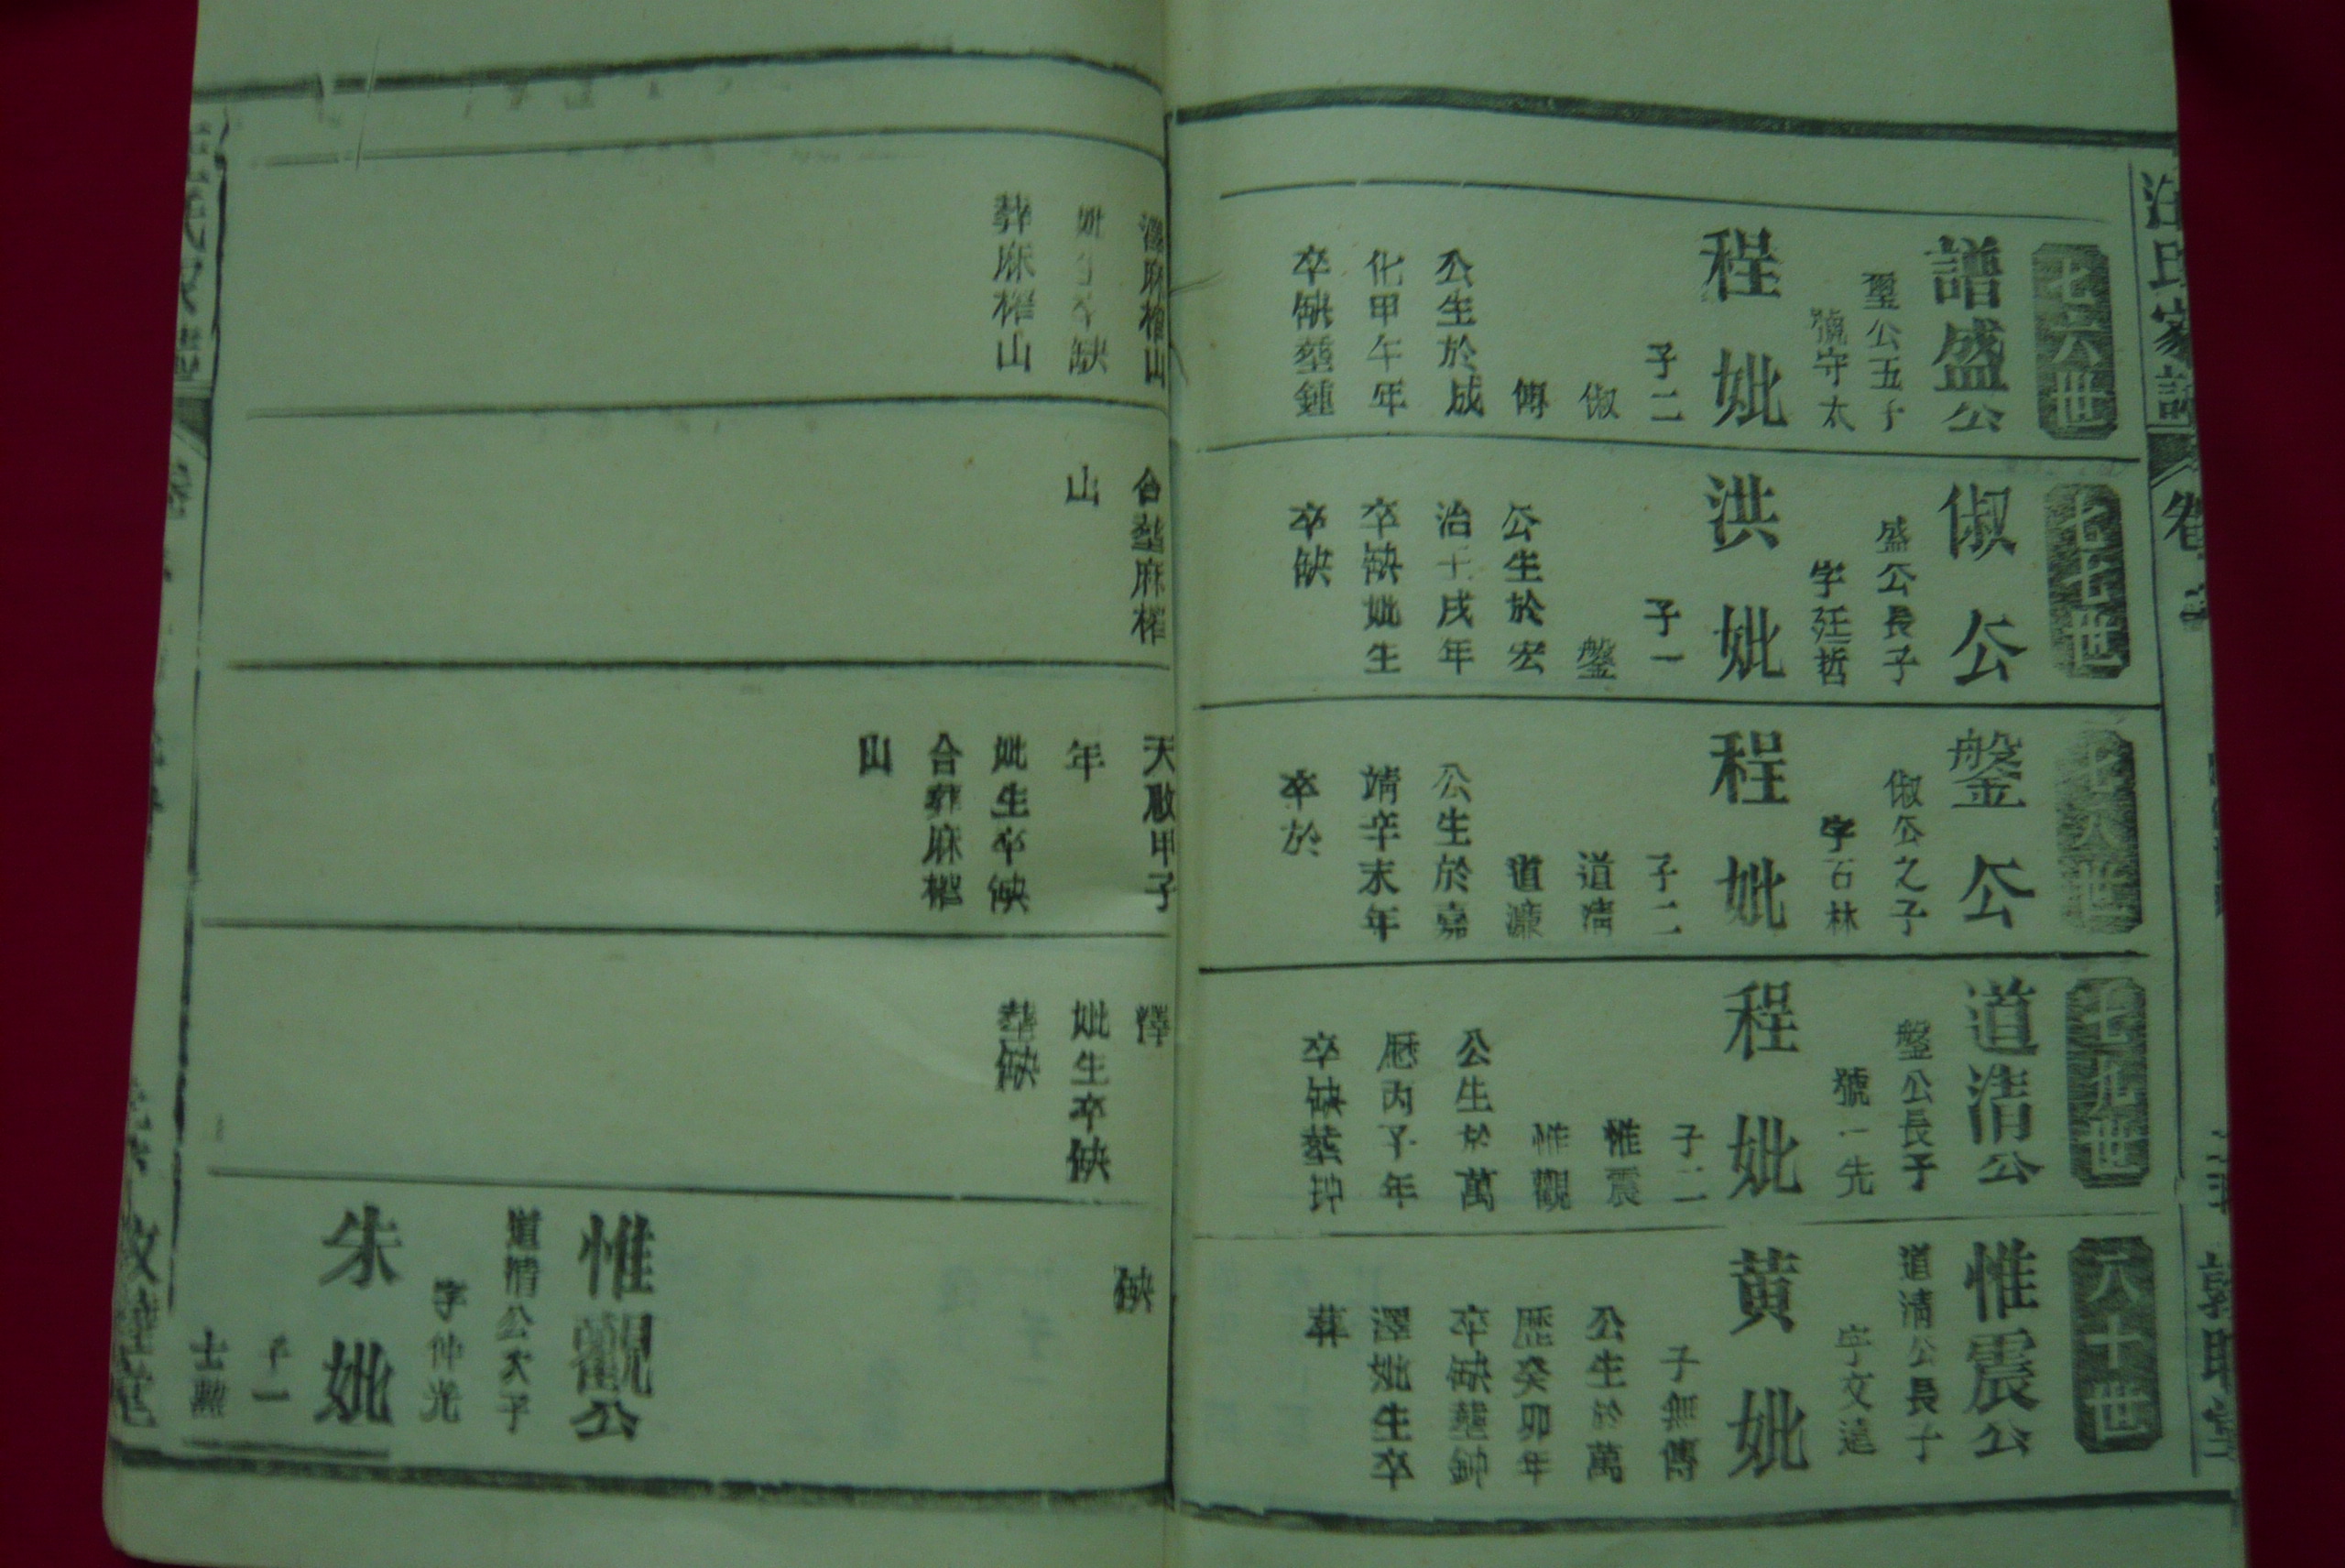 汪氏家譜
卷
七六世
譜盛公
璽公五子
號守太
程妣
子二
俶
傅
公生於成
化甲午年
卒缺塟鍾
七七世
俶公
盛公長子
字廷哲
洪妣
子一
鎜
公生於宏
治壬戌年
卒缺妣生
卒缺
七八世
鎜公
俶公之子
字石林
程妣
子二
道清
道濂
公生於嘉
靖辛未年
卒於
七九世
道清公
鎜公長子
號一先
程妣
子二
惟震
惟觀
公生於萬
厯丙子年
卒缺塟鈡
八十世
惟震公
道清公長子
字文遠
黃妣
子無傳
公生於萬
歷癸卯年
卒缺塟鈡
澤妣生卒
葬
澤麻榨山
妣生卒缺
葬麻榨山
合塟麻榨
山
天啟甲子
年
妣生卒缺
合葬麻榨
山
澤
妣生卒缺
塟缺
缺
惟觀公
道清公次子
字仲光
朱妣
子一
士勲